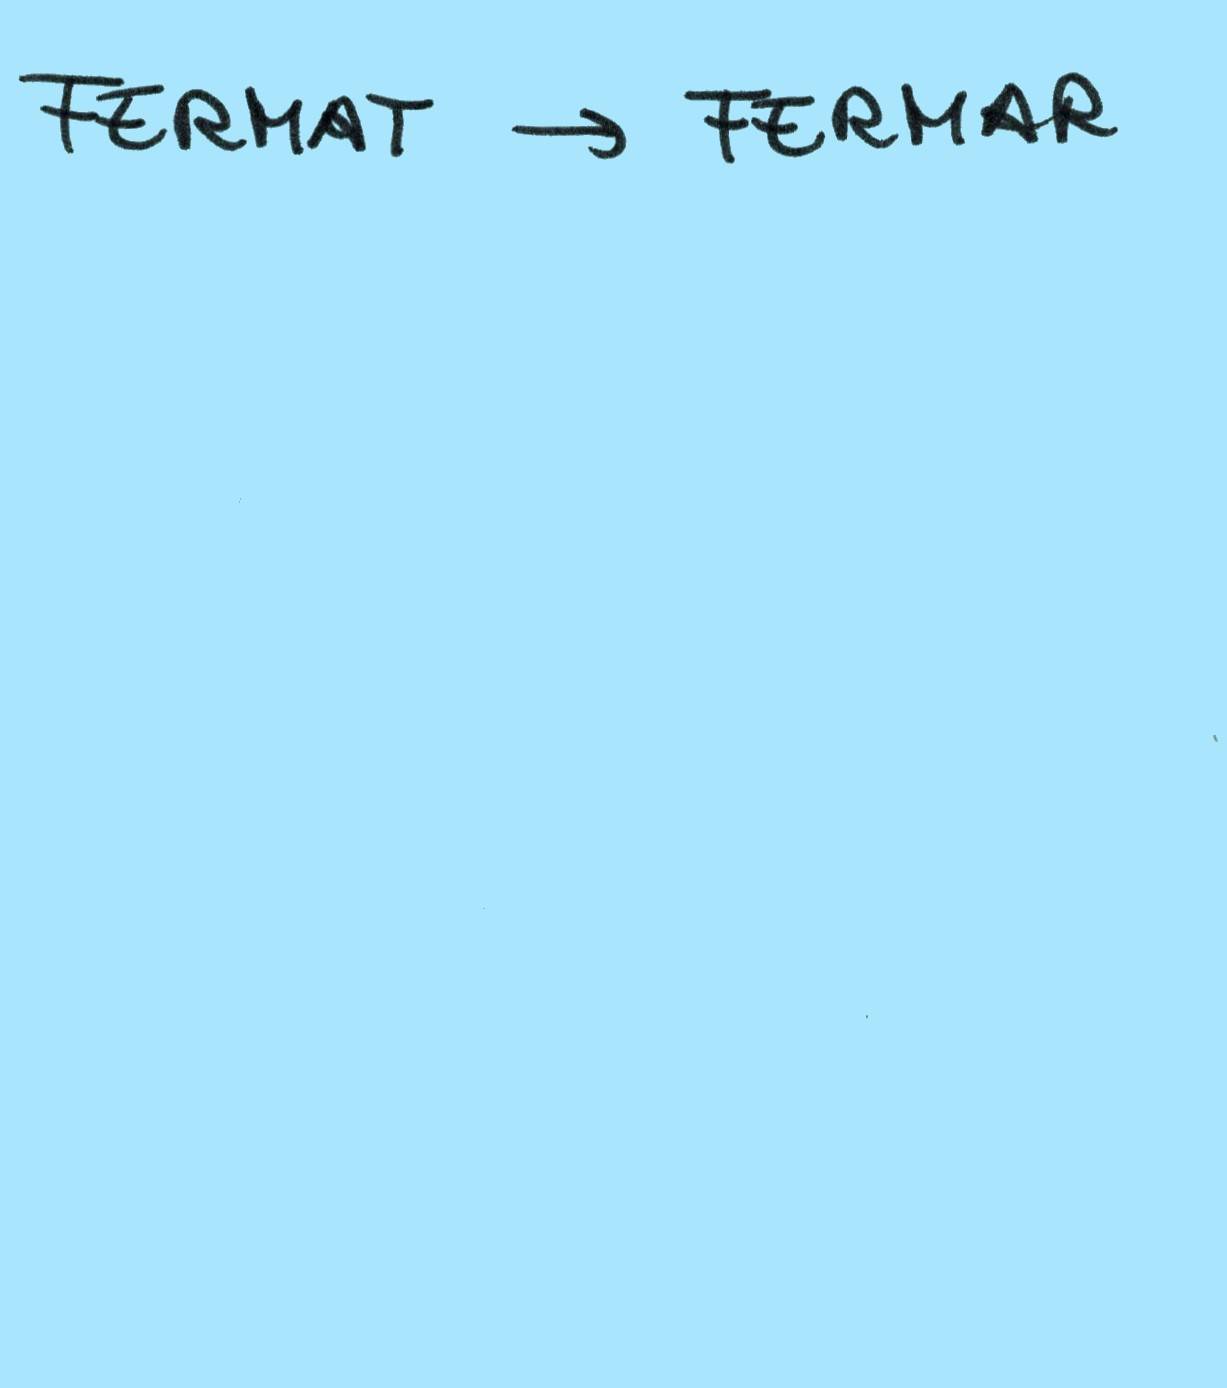 FERMAT → FERMAR